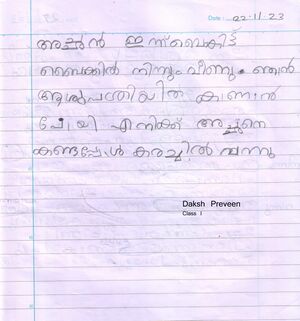 Date : 22-11-23
അച്ഛൻ ഇന്ന് വൈകിട്ട്
ബൈക്കിൽ നിന്നും വീണു. ഞാൻ
ആശുപത്രിയിൽ കാണാൻ
പോയി എനിക്ക് അച്ഛനെ
കണ്ടപ്പോൾ കരച്ചിൽ വന്നു
Daksh Preveen
Class I